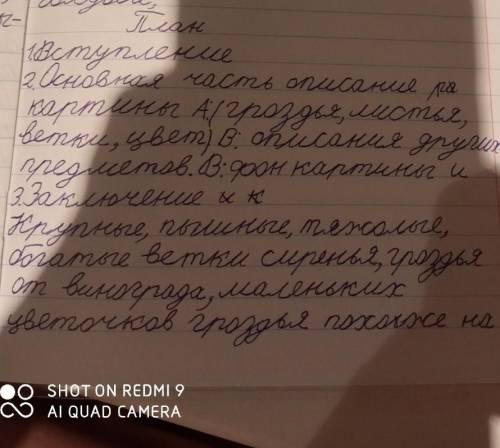 План
1.Вступление
2.Основная часть описание ра
картины А:(гроздья,листья,
ветки,цвет)В: описания других
предметов.В:фон картины и
3.Заключение и к
Крупные, пышные, тяжолые,
богатые ветки сиренья, гроздья
от винограда, маленьких
цветочков гроздья похожже на
SHOT ON REDMI 9
AI QUAD CAMERA